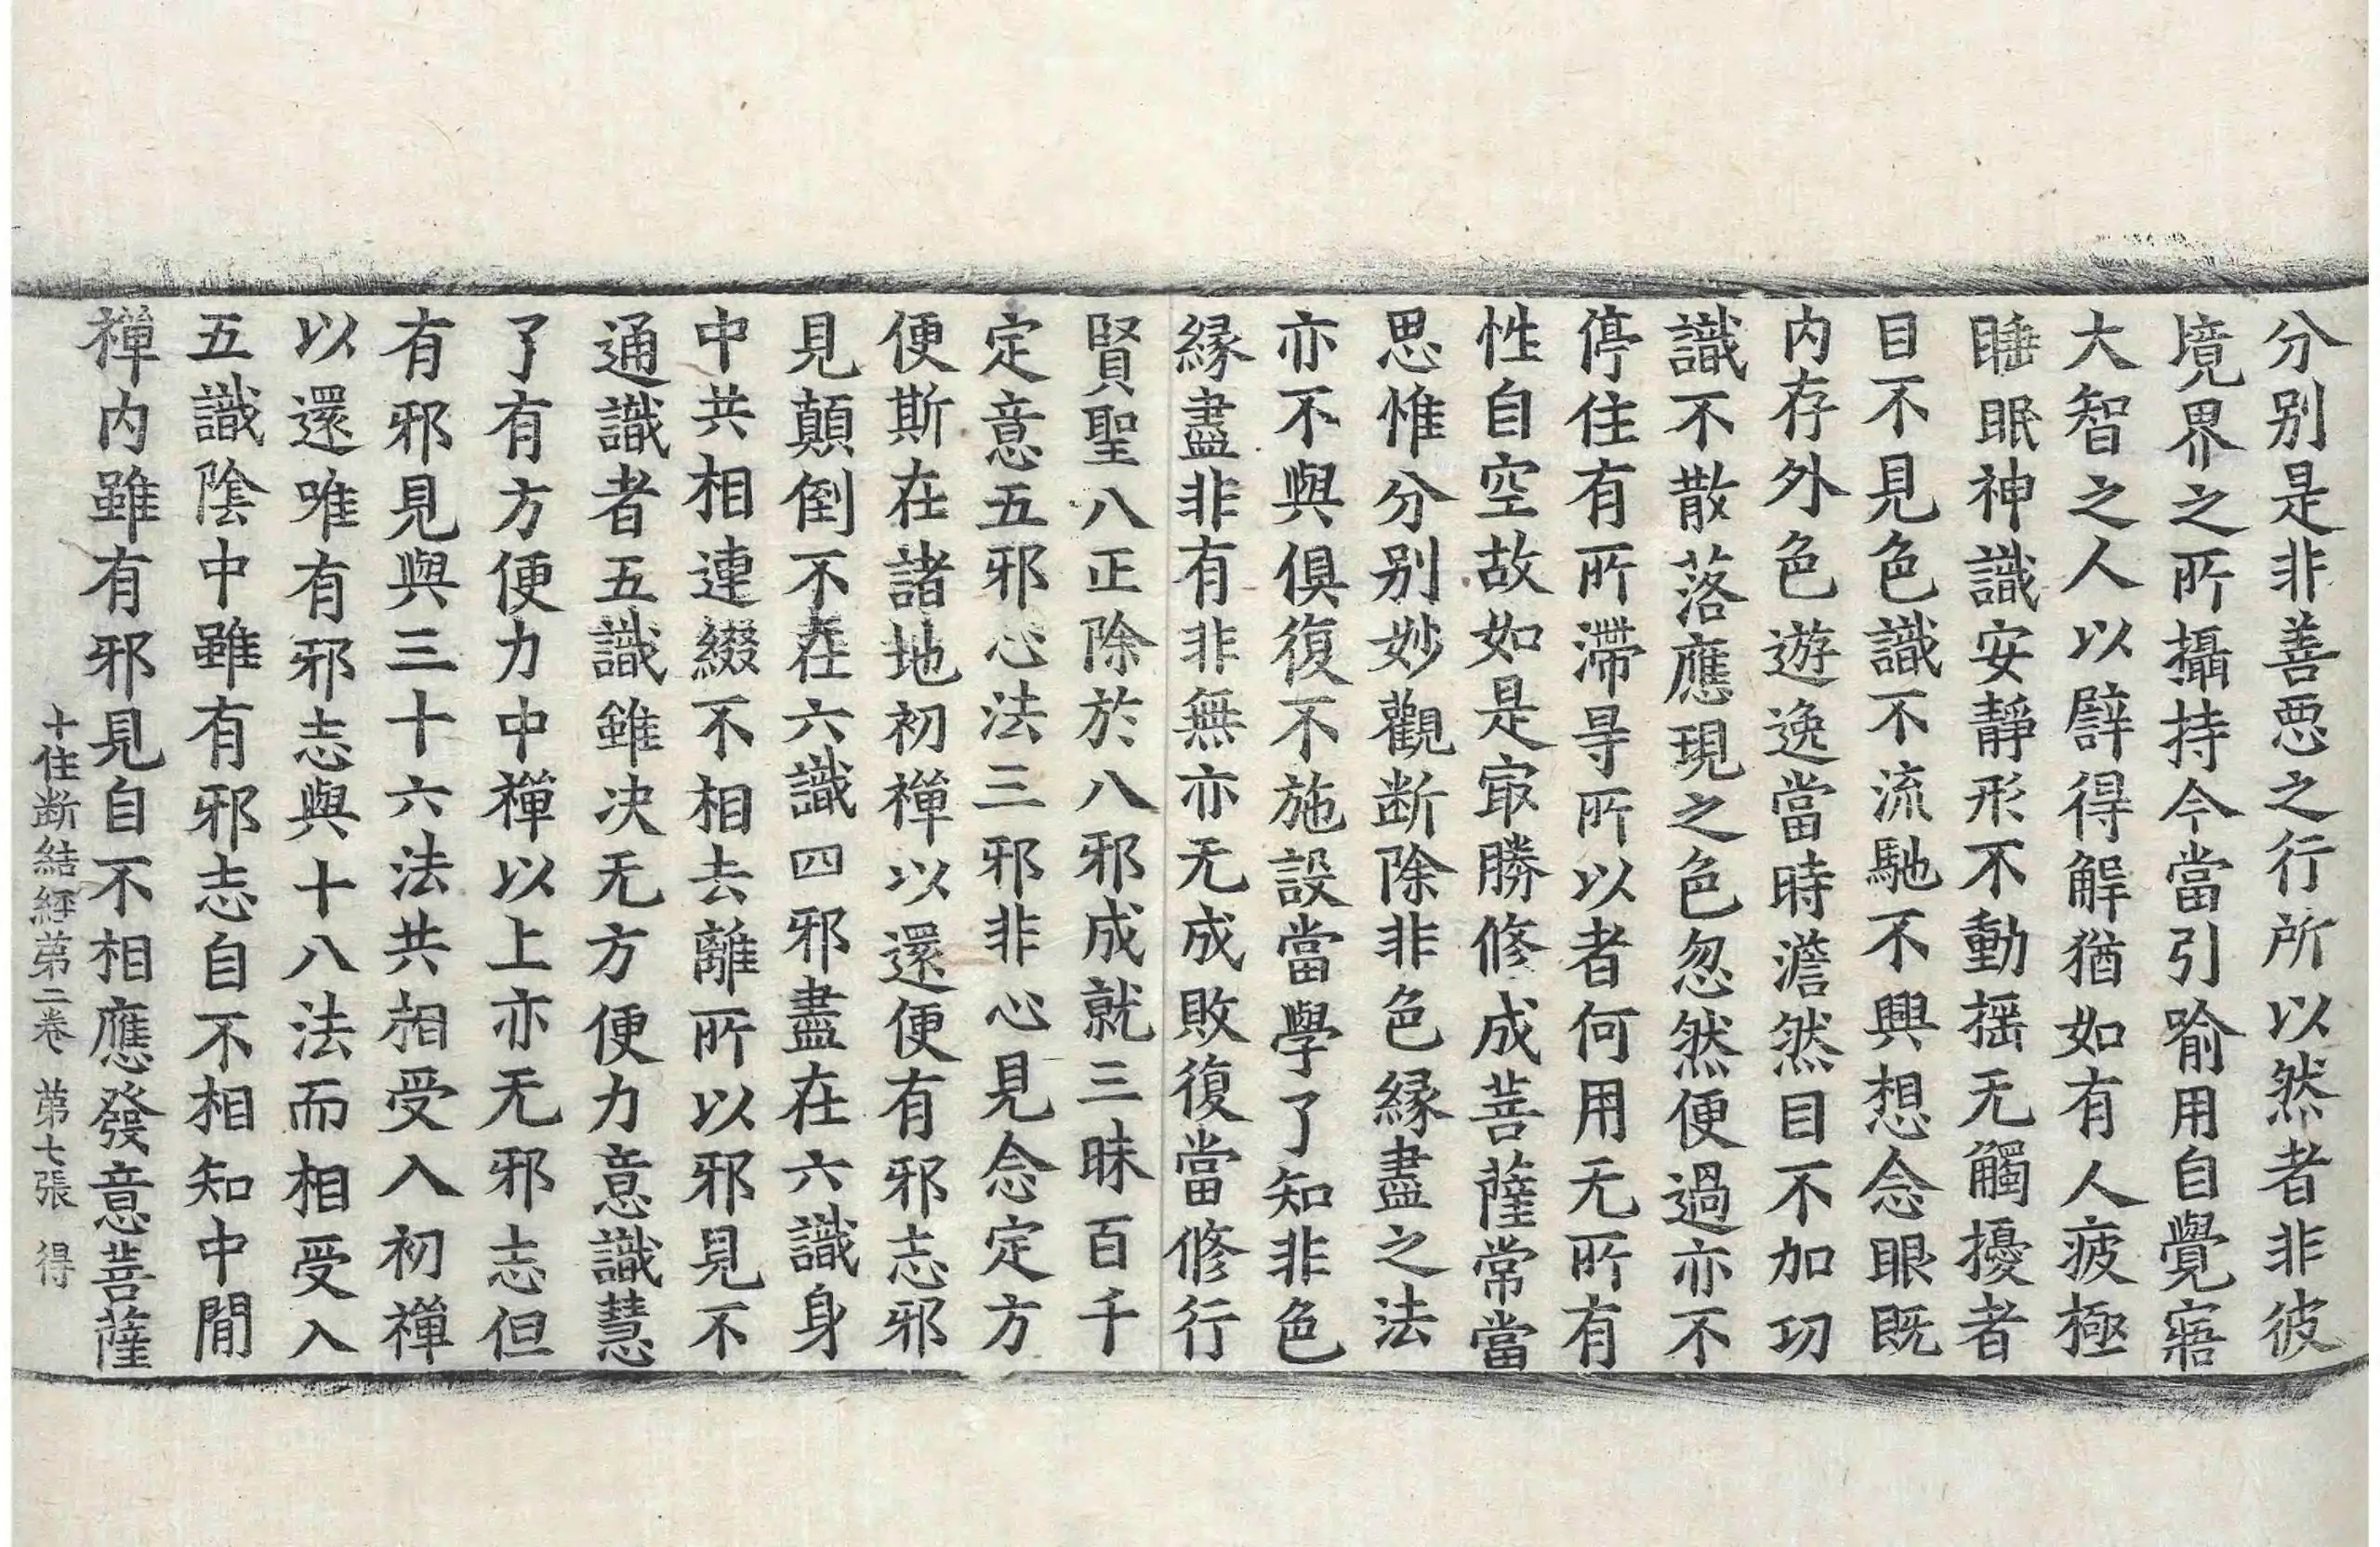 分别是非善恶之行所以然者非彼
境界之所攝持今當引喻用自覺寤
大智之人以譬得解猶如有人疲極
睡眠神識安靜形不動揺无觸擾者
目不見色識不流馳不興想念眼既
内存外色遊逸當時澹然目不加功
識不散落應現之色忽然便過亦不
停住有所滯㝵所以者何用无所有
性自空故如是㝡勝修成菩薩常當
思惟分别妙觀断除非色縁盡之法
亦不與俱復不施設當學了知非色
縁盡非有非無亦无成敗復當修行
賢聖八正除於八邪成就三昧百千
定意五邪心法三邪非心見念定方
便斯在諸地初禪以還便有邪志邪
見顛倒不在六識四邪盡在六識身
中共相連綴不相去離所以邪見不
通識者五識雖决无方便力意識慧
了有方便力中禪以上亦无邪志但
有邪見與三十六法共相受入初禪
以還唯有邪志與十八法而相受入
五識陰中雖有邪志自不相知中間
禪内雖有邪見自不相應發意菩薩
十住断結經第二卷 第七張 得